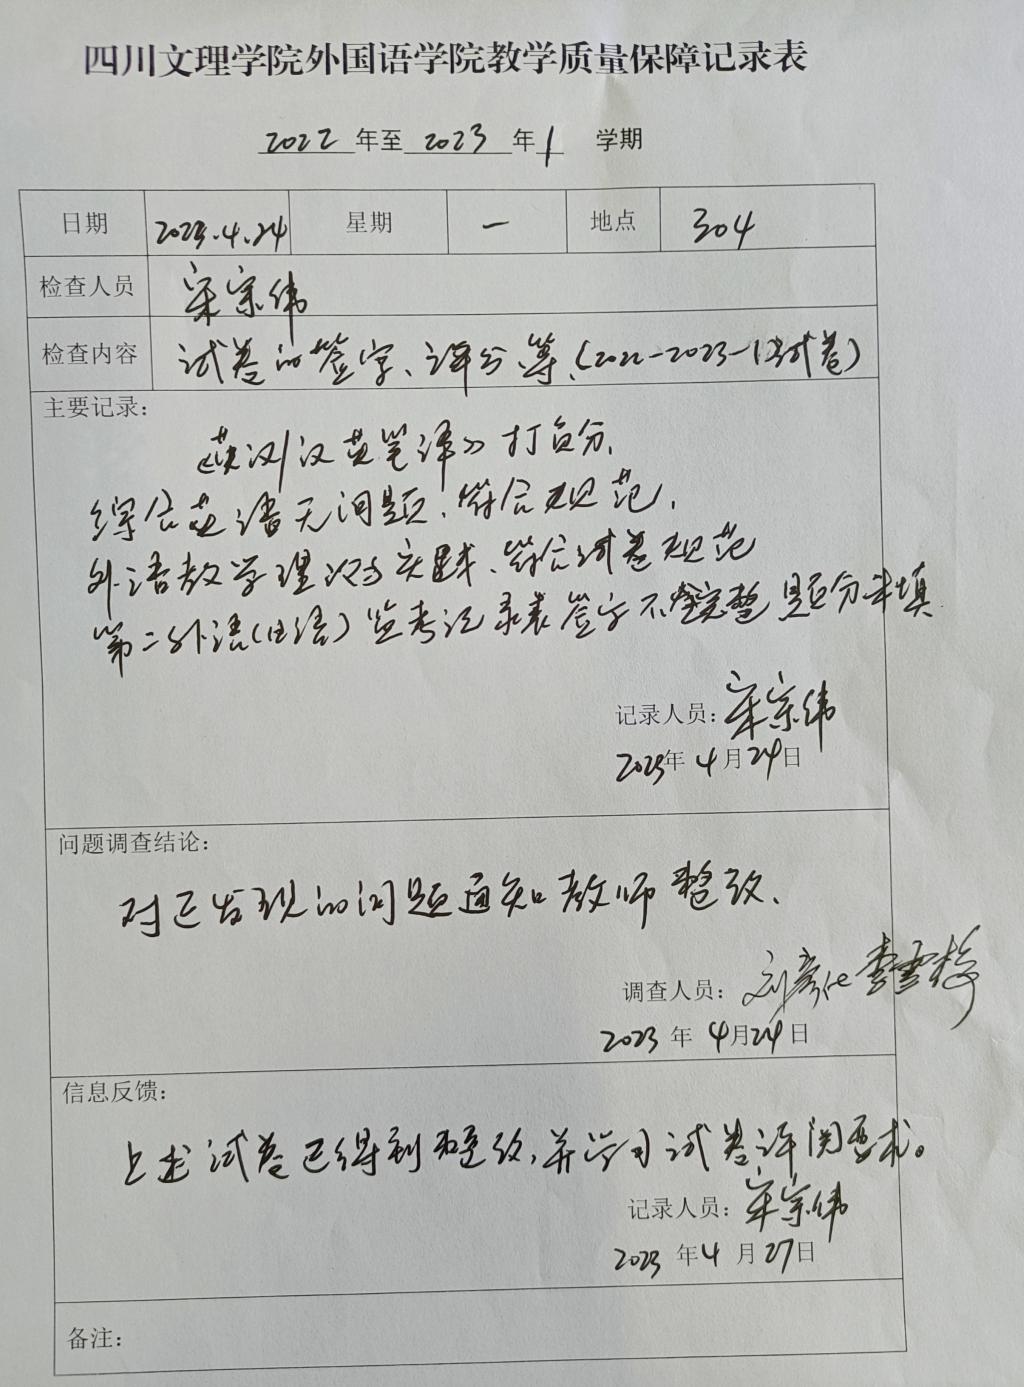 四川文理学院外国语学院教学质量保障记录表
2022 年至 2023 年 1 学期
日期 2023.4.24 星期 一 地点 304
检查人员 宋宗伟
检查内容 试卷的签字、评分等、(2022-2023-1试卷)
主要记录:
《英汉/汉英笔译》打负分、
综合英语无问题、符合规范,
外语教学理论与实践、符合试卷规范
第二外语(日语)监考记录表签字不完整 题分未填
记录人员: 宋宗伟
2023年 4月24日
问题调查结论:
对已发现的问题通知教师整改、
调查人员: 刘彦仕 李雪梅
2023 年 4月24日
信息反馈:
上述试卷已得到整改,并学习试卷评阅要求。
记录人员: 宋宗伟
2023 年 4 月 27日
备注: